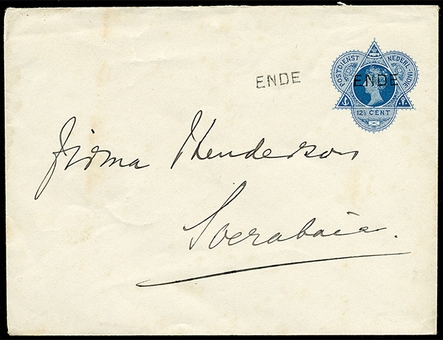 ENDE
POSTDIENST NEDERL-INDIE
ENDE
12½ CENT
Firma Henderson
Soerabaia.